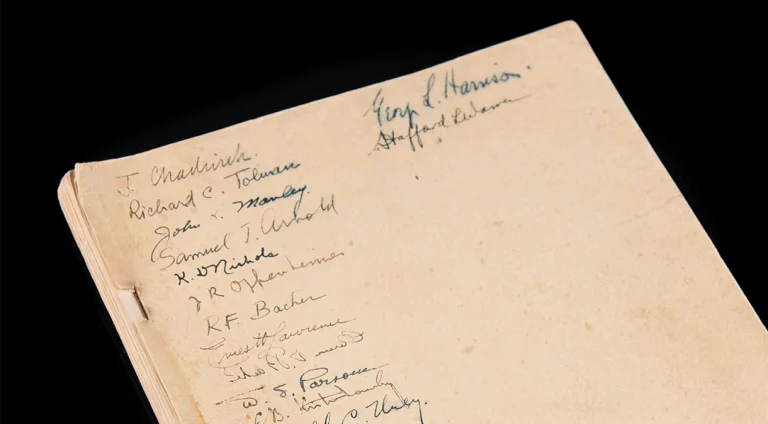 J. Chadwick.
Richard C. Tolman
John H. Manley.
Samuel T. Arnold
K. D Nichols
J R Oppenheimer
R.F. Bacher
Ernest O Lawrence
W. S. Parsons
G.B. Kistiakowsky
C. Urey.
George L. Harrison.
Stafford Warren